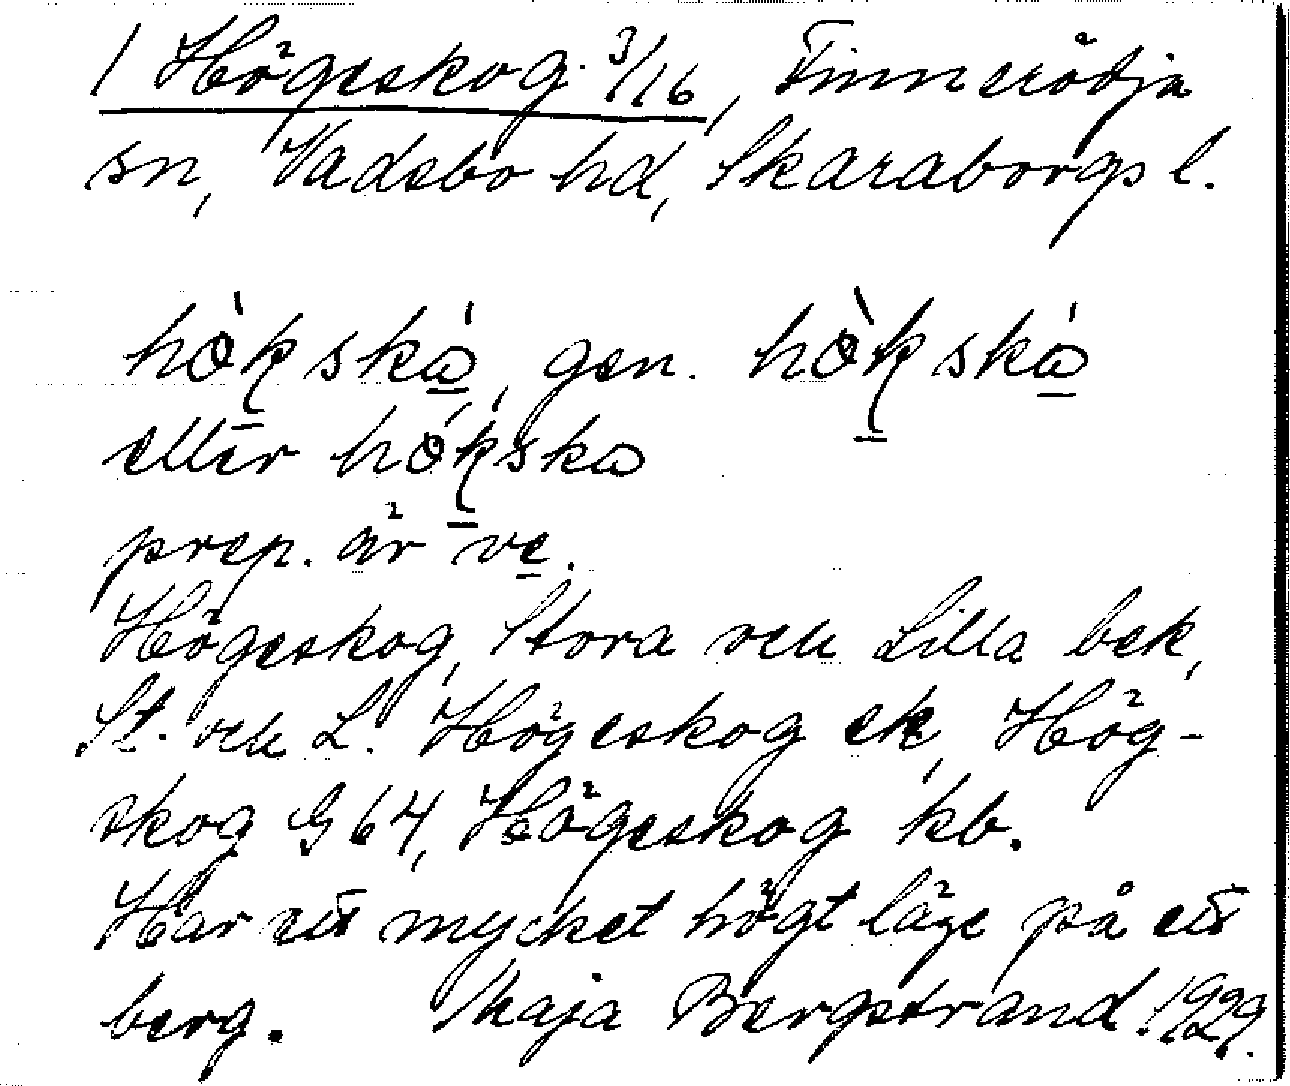 1 Högeskog 3/16, Finnerödja
sn, Vadsbo hd, Skaraborgs l.
hòkská, gen. hòkská
eller hókska
prep. är ve.
Högeskog, Stora och Lilla bek,
St. och L. Högeskog ek, Hög-
skog G 64, Högeskog kb.
Har ett mycket högt läge på ett
berg. Maja Bergstrand 1929.